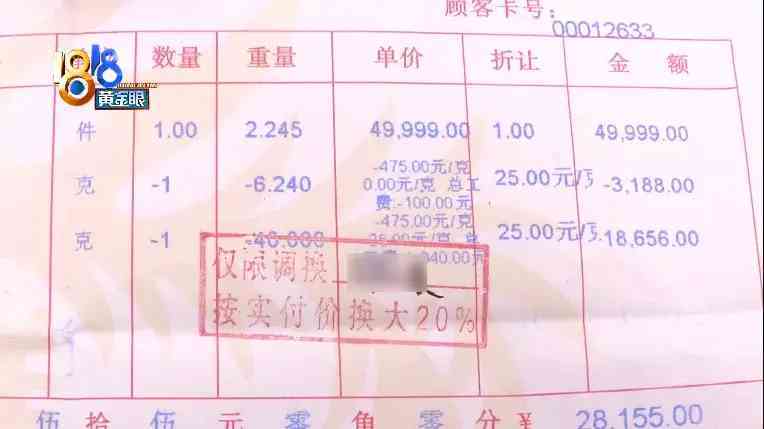 顾客卡号:
00012633
1818
黄金眼
数量 重量 单价 折让 金额
件 1.00 2.245 49,999.00 1.00 49,999.00
-475.00元/克
克 -1 -6.240 0.00元/克 总工 25.00元/ -3,188.00
费:-100.00元
-475.00元/克
克 -1 -40.000 25.00元/ -18,656.00
仅限调换
按实付价换大20%
伍拾伍元零角零分¥ 28,155.00